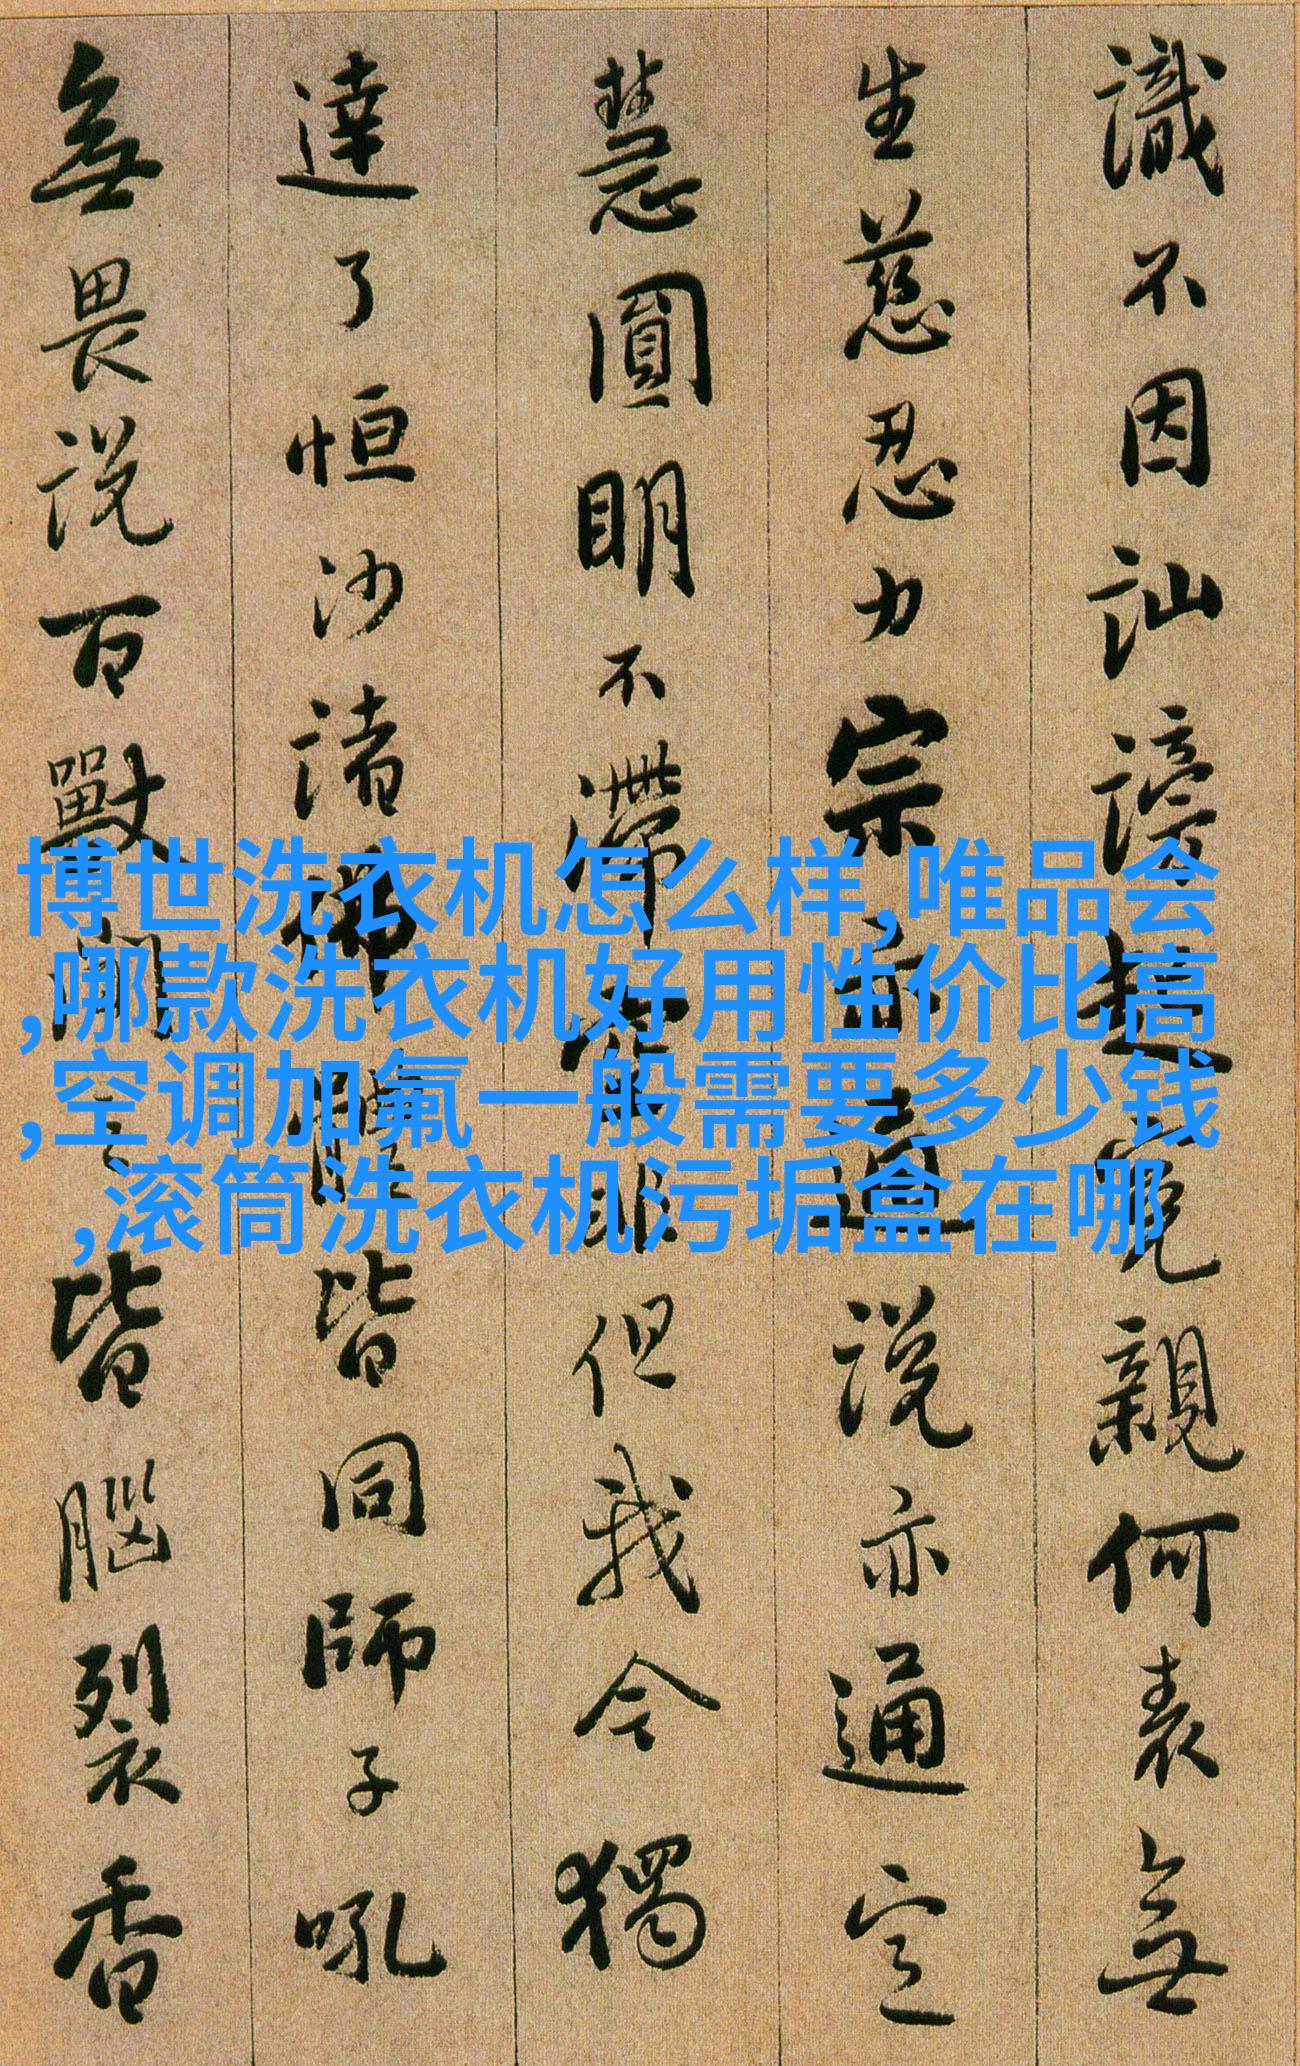 識不因訕謗起冤親何表無
生慈忍力宗亦通說亦通定
慧圓明不滯空非但我今獨
達了恒沙諸佛體皆同師子吼
無畏說百獸聞之皆腦裂香
博世洗衣机怎么样,唯品会
,哪款洗衣机好用性价比高
,空调加氟一般需要多少钱
,滚筒洗衣机污垢盒在哪